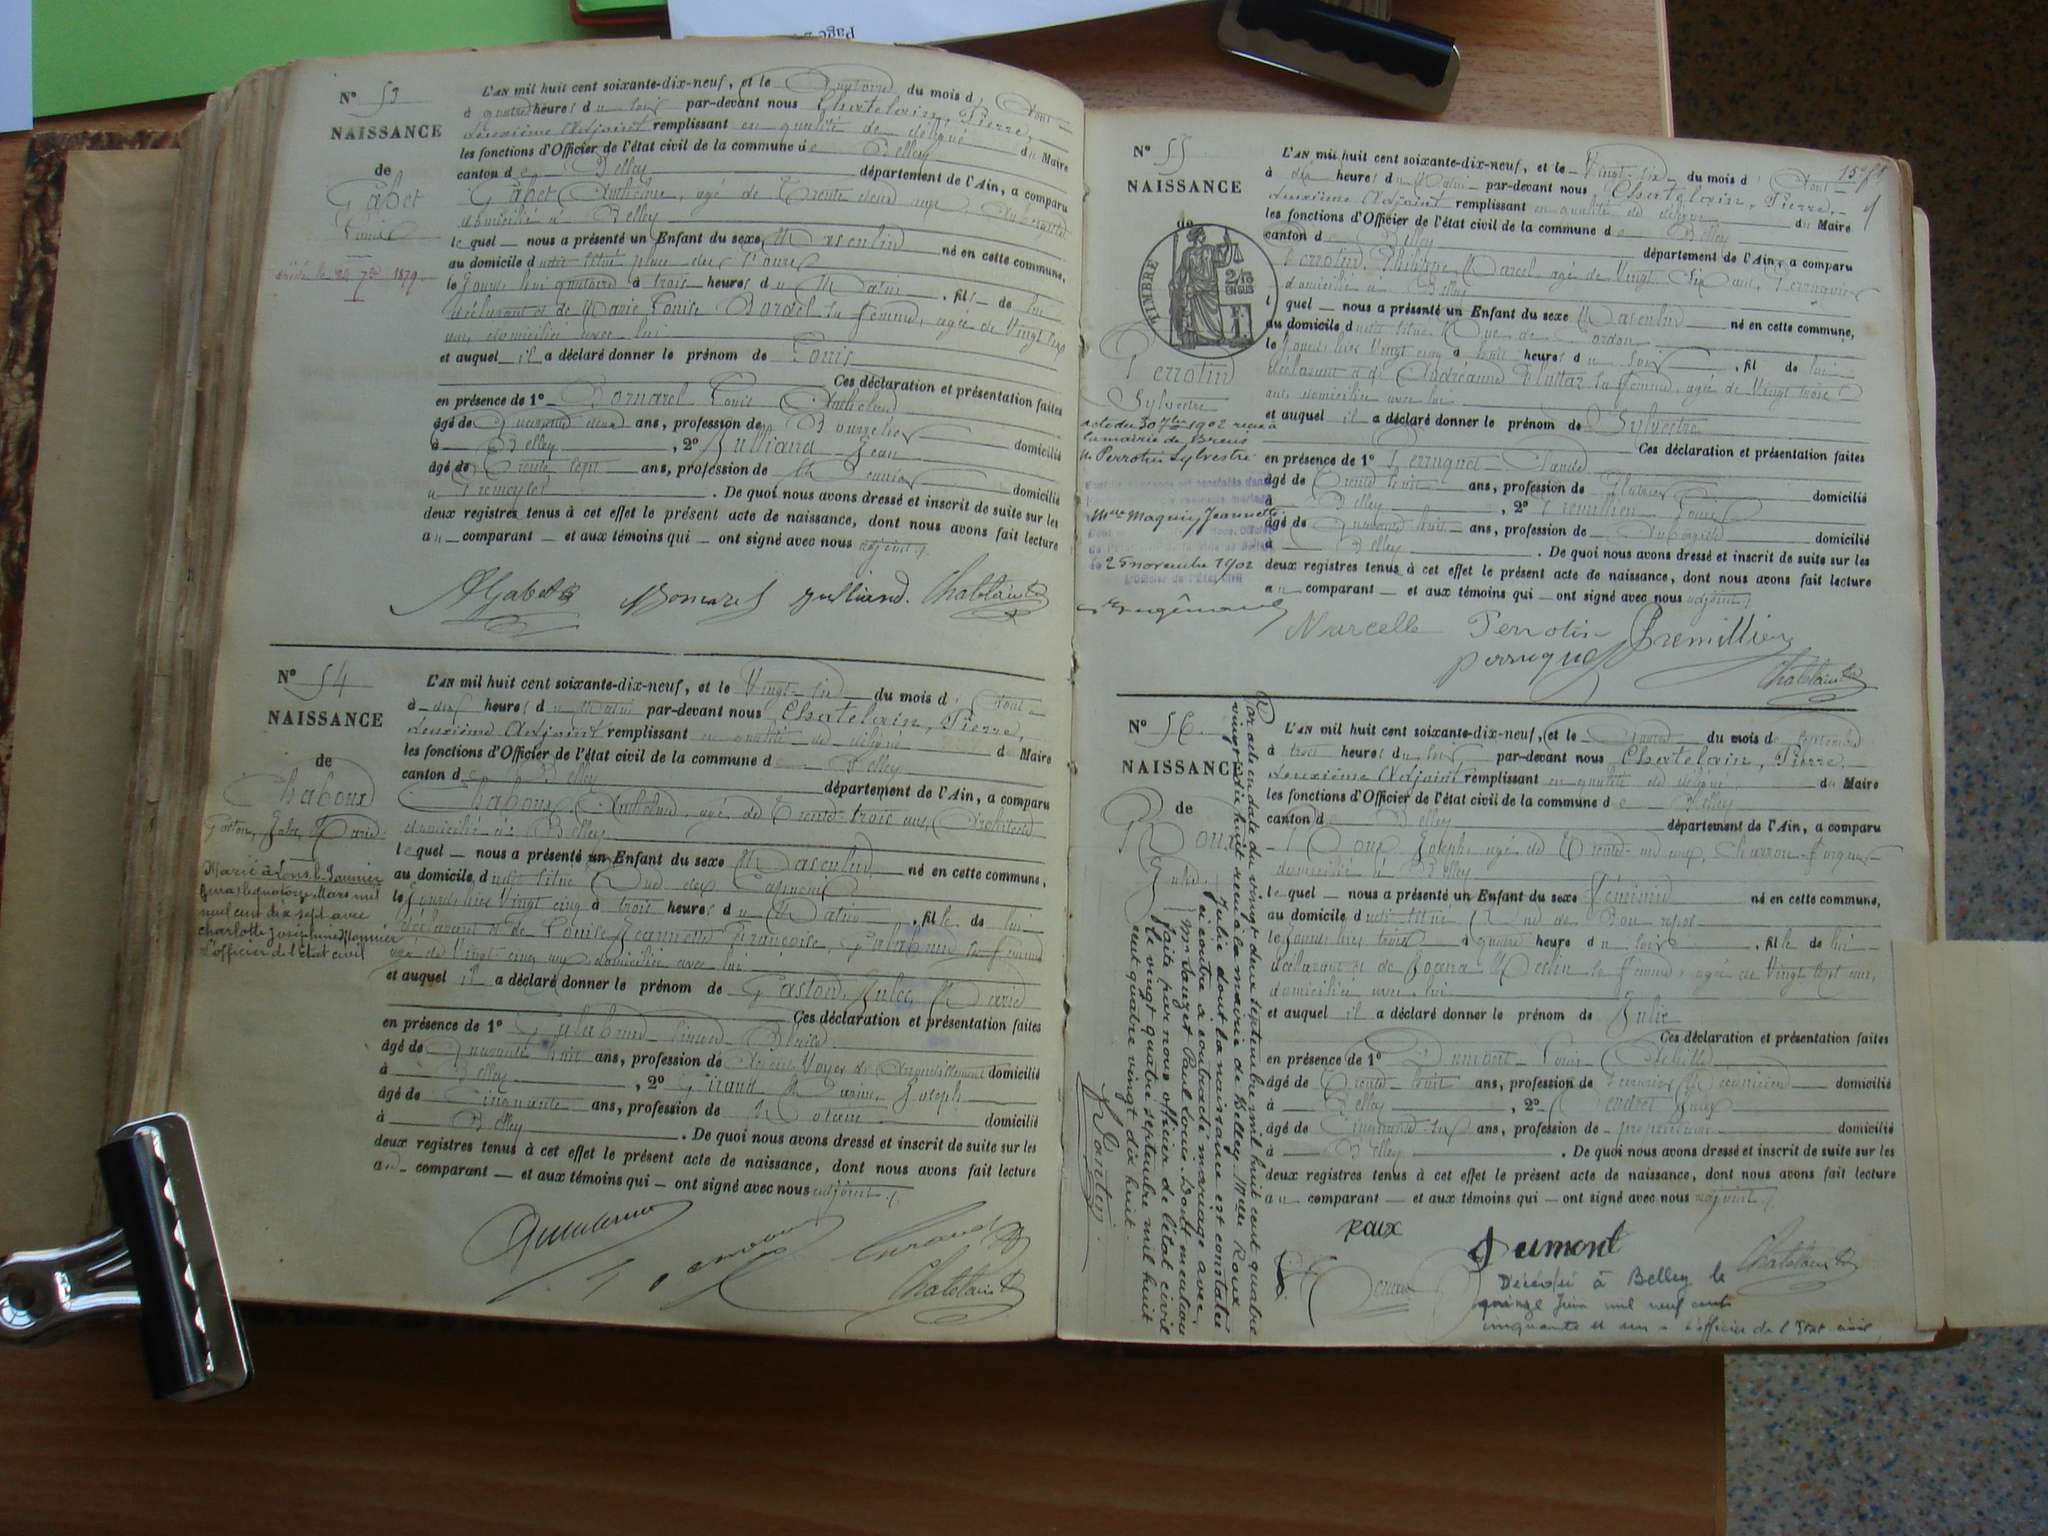 Page
N° 53
NAISSANCE
de
Gabet
Louis
L'AN mil huit cent soixante-dix-neuf, et le Quatorze du mois d'Août
à quatre heures du soir par-devant nous Chatelain, Pierre,
deuxième Adjoint remplissant en qualité de délégué du Maire
les fonctions d'Officier de l'état civil de la commune de Belley
canton de Belley département de l'Ain, a comparu
Gabet Anthelme, agé de Trente deux ans,
domicilié à Belley
lequel nous a présenté un Enfant du sexe Masculin né en cette commune,
au domicile dudit situé place des
le Jourd'hui quatorze à trois heures du Matin, fils de lui
déclarant et de Marie Louise Bornarel sa femme, agée de Vingt
ans domiciliée avec lui
et auquel il a déclaré donner le prénom de Louis
Ces déclaration et présentation faites
en présence de 1° Bornarel Louis Anthelme
âgé de Quarante deux ans, profession de Bourrelier domicilié
à Belley, 2° Julliand Jean
âgé de Trente sept ans, profession de domicilié
à Premeyzel. De quoi nous avons dressé et inscrit de suite sur les
deux registres tenus à cet effet le présent acte de naissance, dont nous avons fait lecture
au comparant et aux témoins qui ont signé avec nous adjoint.
AGabet Bornarel Julliand. Chatelain
N° 54
NAISSANCE
de
Chaboux
Gaston, Jules, Marie
Marié à Lons le Saunier
Jura le quatorze Mars mil
neuf cent dix sept avec
Charlotte Joséphine Monnier
L'officier de l'état civil
L'AN mil huit cent soixante-dix-neuf, et le Vingt-six du mois d'Août
à dix heures du Matin par-devant nous Chatelain, Pierre,
deuxième Adjoint remplissant en qualité de délégué du Maire
les fonctions d'Officier de l'état civil de la commune de Belley
canton de Belley département de l'Ain, a comparu
Chaboux, Anthelme, agé de Trente trois ans, Architecte
domicilié à Belley
lequel nous a présenté un Enfant du sexe Masculin né en cette commune,
au domicile dudit situé Rue des Capucins
le Jour d'hier Vingt cinq à trois heures du Matin, fils de lui
déclarant et de Louise Jeannette Françoise, Galabrun sa femme
agé de Vingt cinq ans domiciliée avec lui
et auquel il a déclaré donner le prénom de Gaston, Jules, Marie
Ces déclaration et présentation faites
en présence de 1° Galabrun
âgé de Quarante huit ans, profession de Agent Voyer d'Arrondissement domicilié
à Belley, 2° Giraud Marin, Joseph
âgé de Cinquante ans, profession de Notaire domicilié
à Belley. De quoi nous avons dressé et inscrit de suite sur les
deux registres tenus à cet effet le présent acte de naissance, dont nous avons fait lecture
au comparant et aux témoins qui ont signé avec nous adjoint.
Giraud
Chatelain
N° 55
NAISSANCE
de
TIMBRE
2/10
EN SUS
Perrotin
Sylvestre
acte du 30 1902 reçu à
la mairie de
M. Perrotin Sylvestre
Mlle Maquin Jeannette
le 25 novembre 1902
L'AN mil huit cent soixante-dix-neuf, et le Vingt-six du mois d'Août
à dix heures du Matin par-devant nous Chatelain, Pierre,
deuxième Adjoint remplissant en qualité de délégué du Maire
les fonctions d'Officier de l'état civil de la commune de Belley
canton de Belley département de l'Ain, a comparu
Perrotin, Philippe, Marcel, agé de Vingt Six ans, Perruquier
domicilié à Belley
lequel nous a présenté un Enfant du sexe Masculin né en cette commune,
au domicile dudit situé Rue de
le Jour d'hier Vingt cinq à huit heures du Soir, fil de lui
déclarant et de sa femme, agée de Vingt trois
ans domiciliée avec lui
et auquel il a déclaré donner le prénom de Sylvestre
Ces déclaration et présentation faites
en présence de 1° Perruquet Claude
âgé de Trente huit ans, profession de Platrier domicilié
à Belley, 2° Premillieu Louis
âgé de Quarante huit ans, profession de Aubergiste domicilié
à Belley. De quoi nous avons dressé et inscrit de suite sur les
deux registres tenus à cet effet le présent acte de naissance, dont nous avons fait lecture
au comparant et aux témoins qui ont signé avec nous adjoint.
Marcelle Perrotin Premillieu
perruquet Chatelain
N° 56
NAISSANCE
de
Roux
Julie
Par acte en date du vingt deux septembre mil huit cent quatre
vingt dix huit reçu à la mairie de Belley Melle Roux
Julie dont la naissance est constatée
ci contre a contracté mariage avec
Mr Sauzet Paul Louis. Dont mention
faite par nous officier de l'état civil
le vingt quatre septembre mil huit
cent quatre vingt dix huit.
L'AN mil huit cent soixante-dix-neuf, et le Quatre du mois de Septembre
à trois heures du soir par-devant nous Chatelain, Pierre,
deuxième Adjoint remplissant en qualité de délégué du Maire
les fonctions d'Officier de l'état civil de la commune de Belley
canton de Belley département de l'Ain, a comparu
Roux Joseph, agé de Trente un ans, Charron
domicilié à Belley
lequel nous a présenté un Enfant du sexe Féminin né en cette commune,
au domicile dudit situé Rue de Bon repos
le Jour d'hier trois à quatre heures du Soir, fille de lui
déclarant et de Merlin sa femme, agée de Vingt sept ans,
domiciliée avec lui
et auquel il a déclaré donner le prénom de Julie
Ces déclaration et présentation faites
en présence de 1° Dumont Louis Achille
âgé de Trente huit ans, profession de domicilié
à Belley, 2° Gendret
âgé de Cinquante six ans, profession de propriétaire domicilié
à Belley. De quoi nous avons dressé et inscrit de suite sur les
deux registres tenus à cet effet le présent acte de naissance, dont nous avons fait lecture
au comparant et aux témoins qui ont signé avec nous adjoint.
Roux Dumont
Chatelain
Décédée à Belley le
quinze Juin mil neuf cent
cinquante et un. L'officier de l'Etat civil,